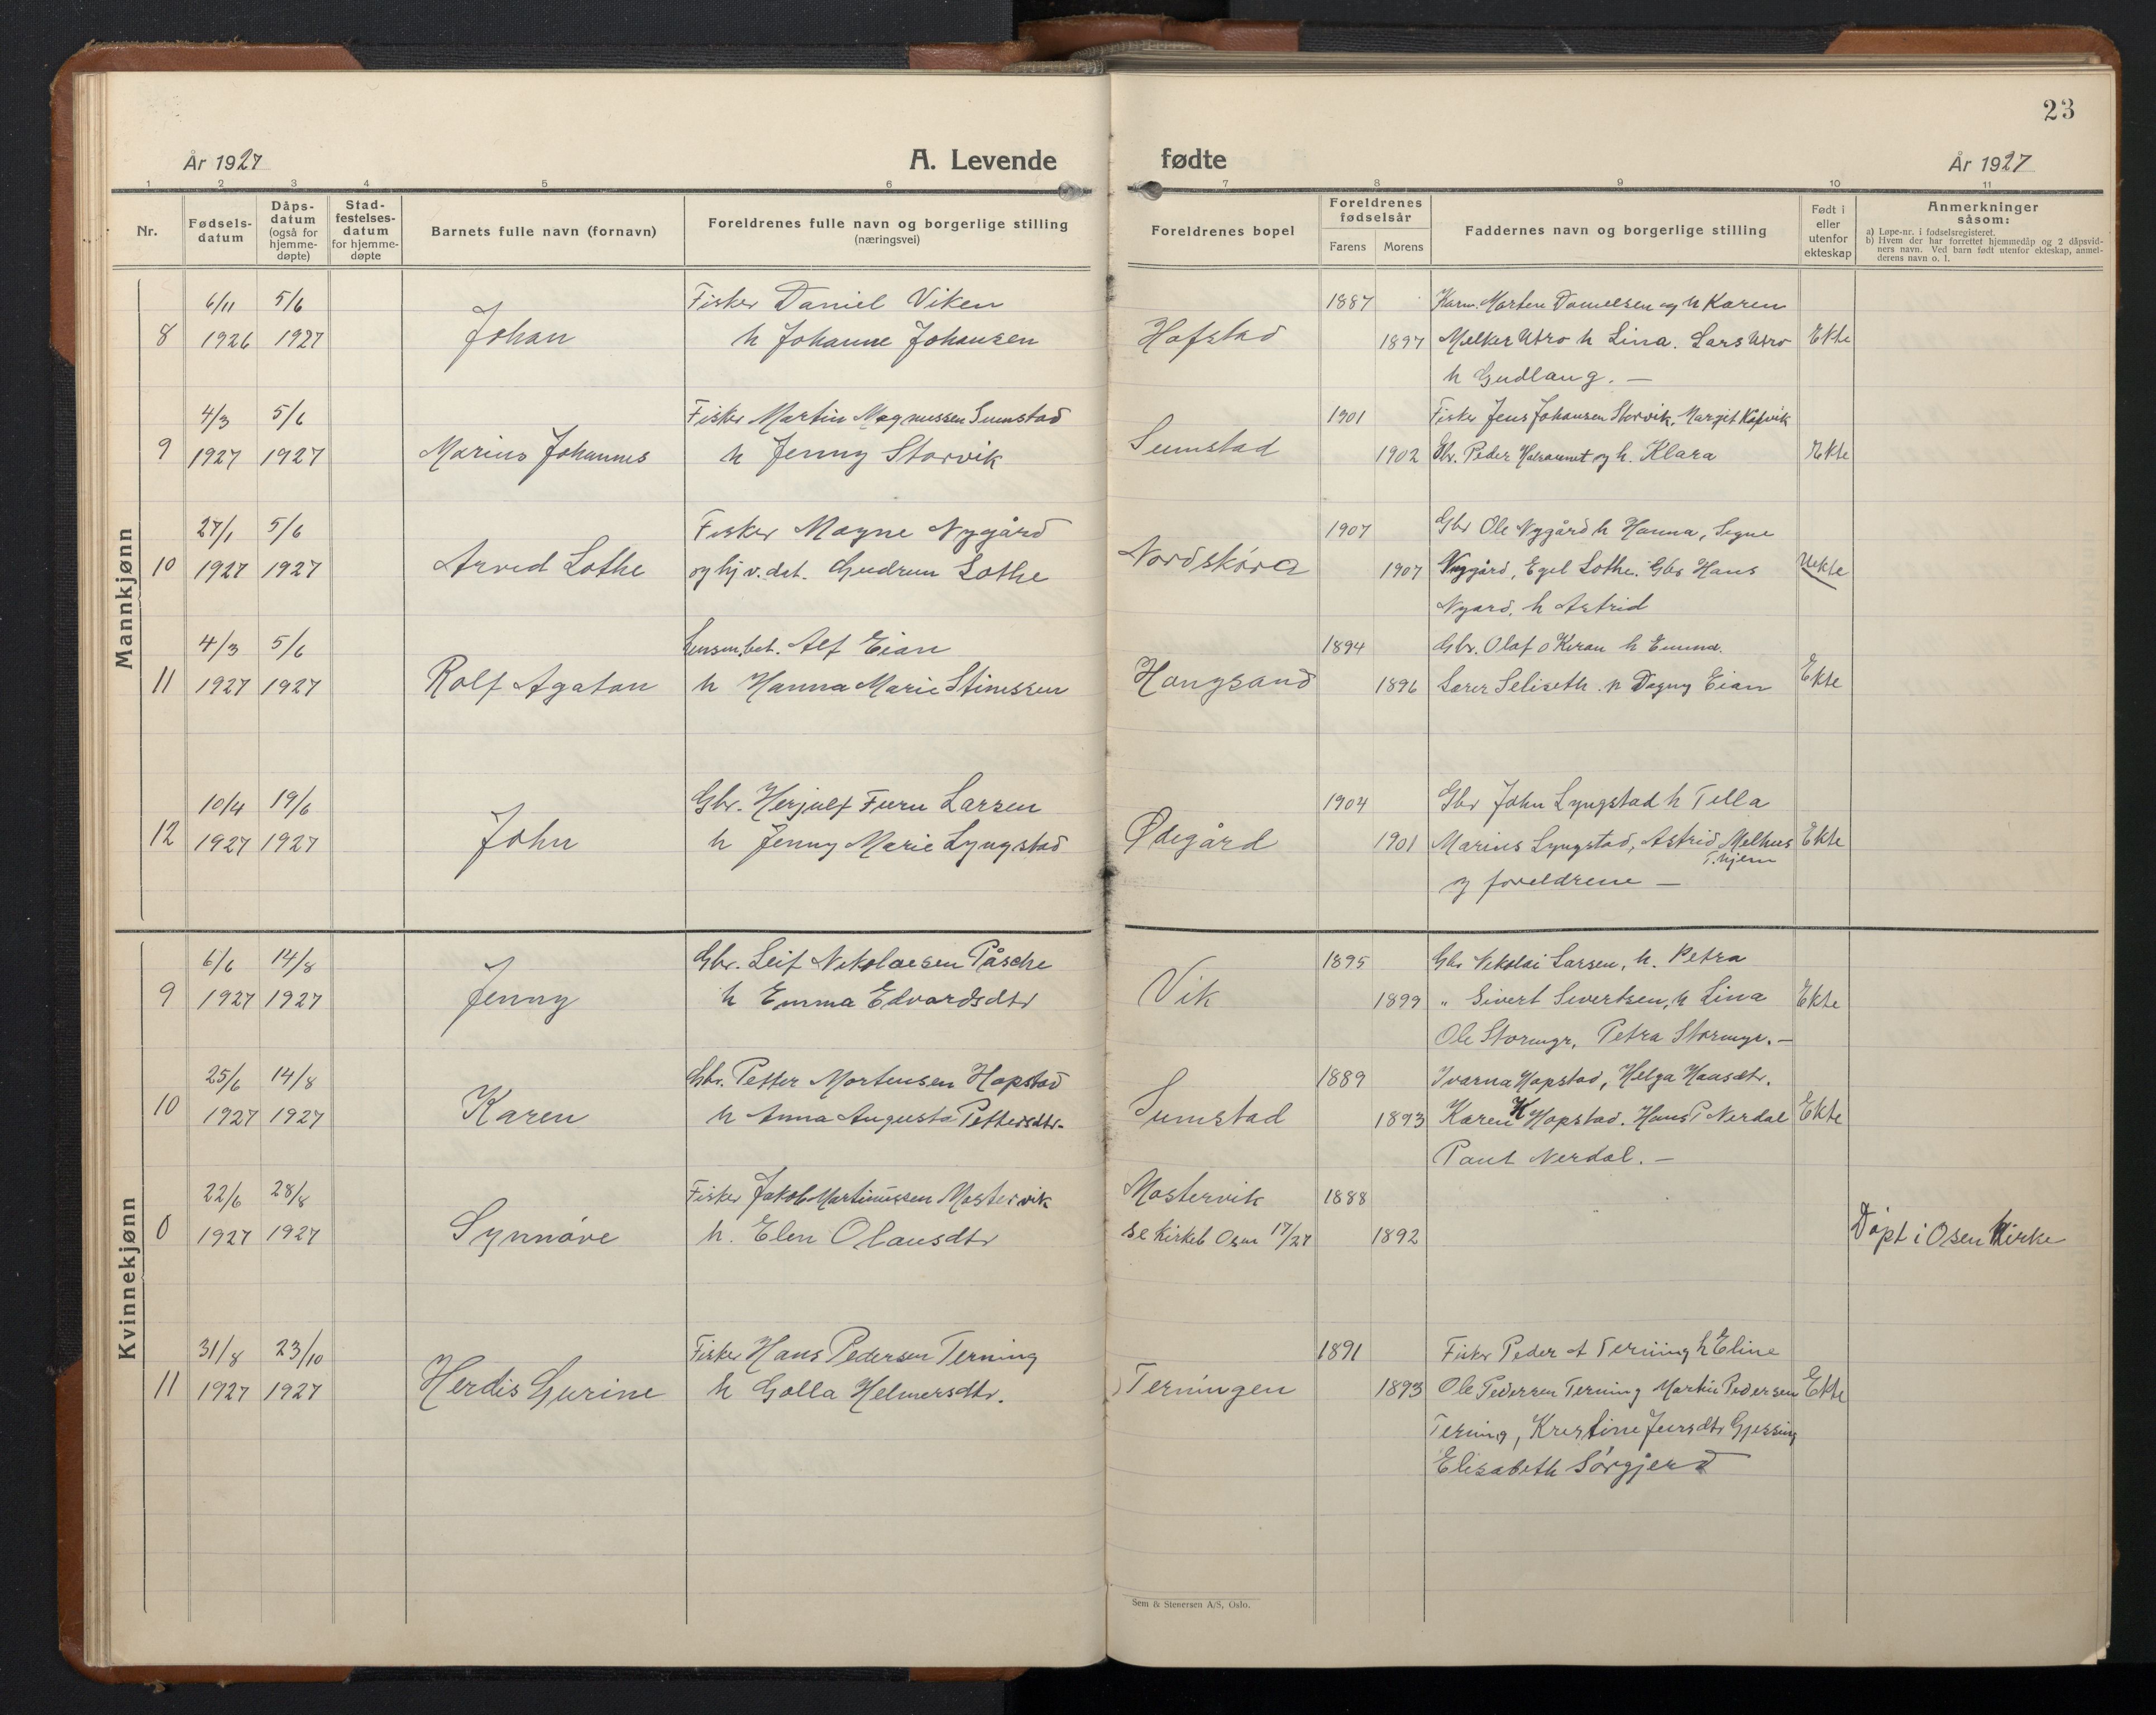 23
År 1927
A. Levende
fødte
År 1927
1 2 3 4 5 6 7 8 9 10 11
Nr.
Fødsels-
datum
Dåps-
datum
(også for
hjemme-
døpte)
Stad-
festelses-
datum
for hjemme-
døpte
Barnets fulle navn (fornavn)
Foreldrenes fulle navn og borgerlige stilling
(næringsvei)
Foreldrenes bopel
Foreldrenes
fødselsår
Farens Morens
Faddernes navn og borgerlige stilling
Født i
eller
utenfor
ekteskap
Anmerkninger
såsom:
a) Løpe-nr. i fødselsregisteret.
b) Hvem der har forrettet hjemmedåp og 2 dåpsvid-
ners navn. Ved barn født utenfor ekteskap, anmel-
derens navn o. l.
Mannkjønn
6/11 5/6 Fisker Daniel Viken 1887 Morten Danielsen og h Karen
8 1926 1927 Johan h Johanne Johansen Hofstad 1897 Melker Utro h Lina. Lars Utro Ekte
h Gudlaug. —
4/3 5/6 Fisker Martin Magnussen Sumstad 1901 Fisker Jens Johansen Storvik, Margit
9 1927 1927 Marius Johannes h Jenny Storvik Sumstad 1902 Gbr. Peder og h. Klara Ekte
27/1 5/6 Fisker Magne Nygård 1907 Gbr Ole Nygård h Hanna, Signe
10 1927 1927 Arvid Lothe og hj v. dat. Gudrun Lothe Nordskøra 1907 Nygård, Egel Lothe. Gbr Hans Uekte
Nyard, h Astrid
4/3 5/6 Lensm.bet. Alf Eian 1894 Gbr. Olaf o Kiran h Emma.
11 1927 1927 Rolf Agaton h Hanna Marie Stinessen Hongsand 1896 Lærer Seliseth. h Dagny Eian Ekte
10/4 19/6 Gbr. Herjulf Furu Larsen 1904 Gbr John Lyngstad h Tella
12 1927 1927 John h Jenny Marie Lyngstad Ødegård 1901 Marius Lyngstad, Astrid Melhus Ekte
T.hjem
og foreldrene —
Kvinnekjønn
6/6 14/8 Gbr. Leif Nikolaesen Påsche 1895 Gbr Nikolai Larsen, h. Petra
9 1927 1927 Jenny h Emma Edvardsdtr Vik 1899 " Sivert Sivertsen, h Lina Ekte
Ole Stormyr, Petra Stormyr. —
25/6 14/8 Gbr. Petter Mortensen Hopstad 1889 Ivarna Hopstad, Helga Hansdtr.
10 1927 1927 Karen h Anna Augusta Pettersdtr. Sumstad 1893 Karen K Hopstad. Hans P Nerdal Ekte
Paul Nerdal. —
22/6 28/8 Fisker Jakob Martinussen Mastervik Mastervik 1888
0 1927 1927 Synnøve h. Elen Olausdtr se Kirkeb Osen 17/27 1892 Døpt i Osen Kirke
31/8 23/10 Fisker Hans Pedersen Terning 1891 Fisker Peder A Terning h Eline
11 1927 1927 Herdis Gurine h Golla Helmersdtr. Terningen 1893 Ole Pedersen Terning Martin Pedersen Ekte
Terning, Kristine Jensdtr Gjessing
Elisabeth Sørgjerd
Sem & Stenersen A/S, Oslo.